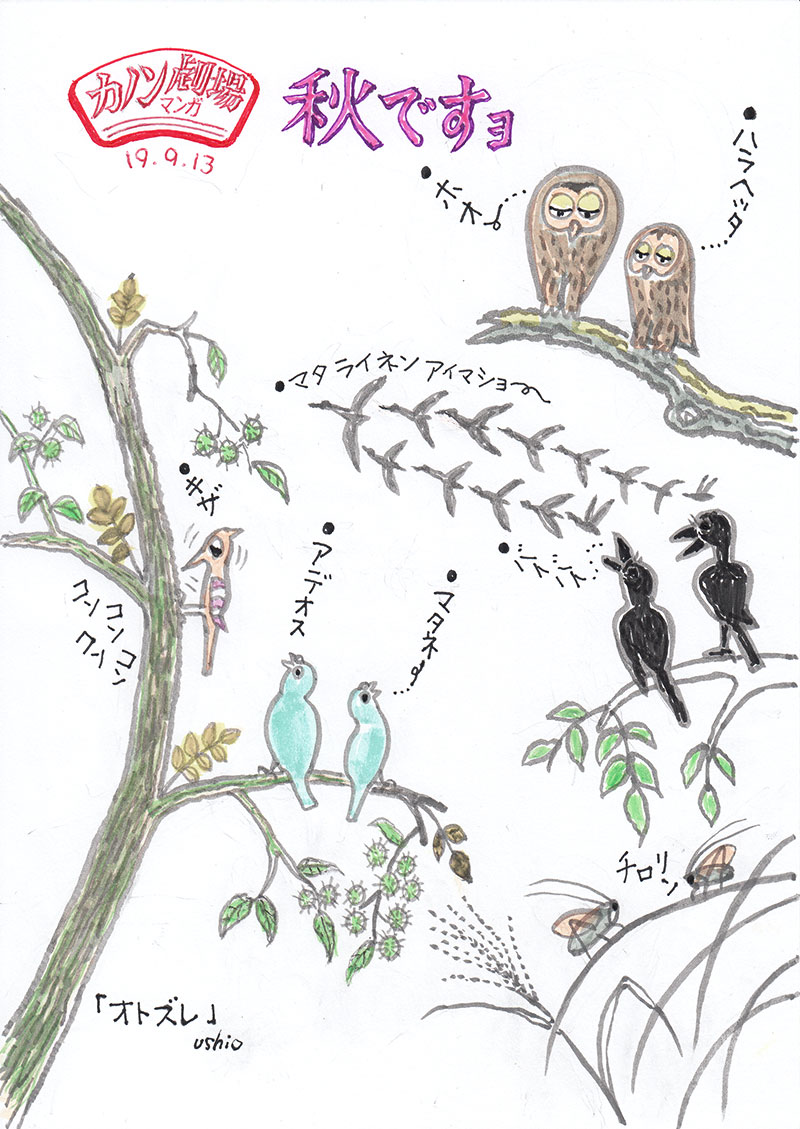 カノン劇場
マンガ
19.9.13
秋ですョ
ハラヘッタ
ホホー
マタライネンアイマショー
キザ
コンコンコン
アデオス
マタネー
チロリン
「オトズレ」
ushio